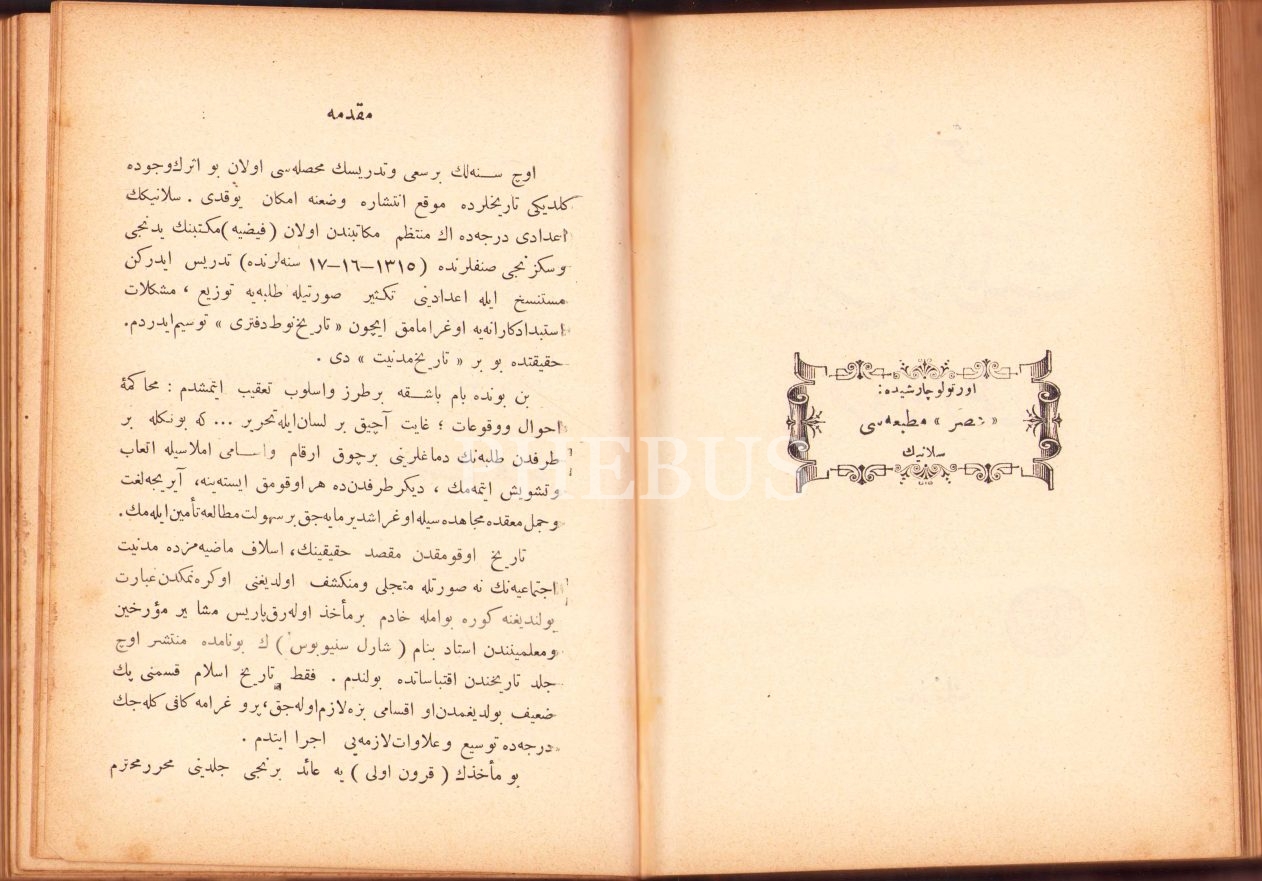 اورتولو چارشیده:
« نصر » مطبعه‌سی
سلانیك
مقدمه
اوچ سنه‌لك بر سعی وتدریسك محصله‌سی اولان بو اثرك وجوده
كلدیكی تاریخلرده موقع انتشاره وضعنه امكان یوقدی . سلانیكك
اعدادی درجه‌ده اك منتظم مكاتبندن اولان ( فیضیه ) مكتبنك یدنجی
وسكزنجی صنفلرنده ( ١٣١٥–١٦–١٧ سنه‌لرنده ) تدریس ایدركن
مستنسخ ایله اعدادینی تكثیر صورتیله طلبه‌یه توزیع ، مشكلات
استبدادكارانه‌یه اوغرامامق ایچون « تاریخ نوط دفتری » توسیم ایدردم.
حقیقتده بو بر « تاریخ مدنیت » دی .
بن بونده بام باشقه بر طرز واسلوب تعقیب ایتمشدم : محاكمۀ
احوال ووقوعات ؛ غایت آچیق بر لسان ایله تحریر ... كه بونكله بر
طرفدن طلبه‌نك دماغلرینی بر چوق ارقام واسامی املاسیله اتعاب
وتشویش ایتمه‌مك ، دیكر طرفدن ده هر اوقومق ایسته‌ینه، آیریجه لغت
وجمل معقده مجاهده سیله اوغراشدیرمایه‌جق بر سهولت مطالعه تأمین ایله‌مك.
تاریخ اوقومقدن مقصد حقیقینك، اسلاف ماضیه‌مزده مدنیت
اجتماعیه‌نك نه صورتله متجلی ومنكشف اولدیغنی اوكره‌نمكدن عبارت
بولندیغنه كوره بو امله خادم بر مأخذ اوله‌رق پاریس مشاهیر مؤرخین
ومعلمیندن استاد بنام ( شارل سنیوبوس ) ك بو نامده منتشر اوچ
جلد تاریخندن اقتباساتده بولندم . فقط تاریخ اسلام قسمنی پك
ضعیف بولدیغمدن او اقسامی بزه لازم اوله‌جق، پروغرامه كافی كله‌جك
درجه‌ده توسیع وعلاوات لازمه‌یی اجرا ایتدم .
بو مأخذك ( قرون اولی ) یه عائد برنجی جلدینی محرر محترم
PHEBUS